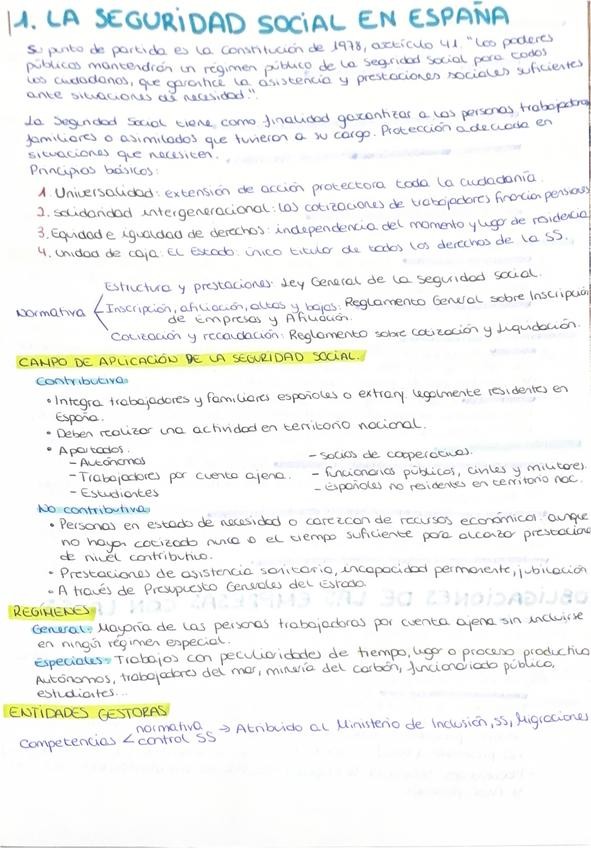 1. LA SEGURIDAD SOCIAL EN ESPAÑA
Su punto de partida es la constitución de 1978, artículo 41. "Los poderes
públicos mantendrán un régimen público de la Seguridad Social para todos
los ciudadanos, que garantice la asistencia y prestaciones sociales suficientes
ante situaciones de necesidad".
La Seguridad Social tiene como finalidad garantizar a las personas trabajadoras
familiares o asimilados que tuvieron a su cargo. Protección adecuada en
situaciones que necesiten.
Principios básicos:
1. Universalidad: extensión de acción protectora toda la ciudadanía.
2. Solidaridad intergeneracional: las cotizaciones de trabajadores financian pensiones
3. Equidad e igualdad de derechos: independencia del momento y lugar de residencia
4. Unidad de caja: El Estado: único titular de todos los derechos de la SS.
Estructura y prestaciones: Ley General de la Seguridad social.
Normativa Inscripción, afiliación, altas y bajas: Reglamento General sobre Inscripción
de Empresas y Afiliación.
Cotización y recaudación: Reglamento sobre cotización y liquidación.
CAMPO DE APLICACIÓN DE LA SEGURIDAD SOCIAL.
Contributiva:
• Integra trabajadores y familiares españoles o extranj. legalmente residentes en
España.
• Deben realizar una actividad en territorio nacional.
• Apartados.
- Autónomos
- Trabajadores por cuenta ajena.
- Estudiantes
- Socios de cooperativas.
- Funcionarios públicos, civiles y militares.
- Españoles no residentes en territorio nac.
No contributiva
• Personas en estado de necesidad o carezcan de recursos económicos. aunque
no hayan cotizado nunca o el tiempo suficiente para alcanzar prestaciones
de nivel contributivo.
• Prestaciones de asistencia sanitaria, incapacidad permanente, jubilación
• A través de Presupuesto Generales del Estado.
REGÍMENES
General: Mayoría de las personas trabajadoras por cuenta ajena sin incluirse
en ningún régimen especial.
Especiales: Trabajos con peculiaridades de tiempo, lugar o proceso productivo
Autónomos, trabajadores del mar, minería del carbón, funcionariado público,
estudiantes...
ENTIDADES GESTORAS
Competencias < normativa control SS → Atribuido al Ministerio de Inclusión, SS, Migraciones